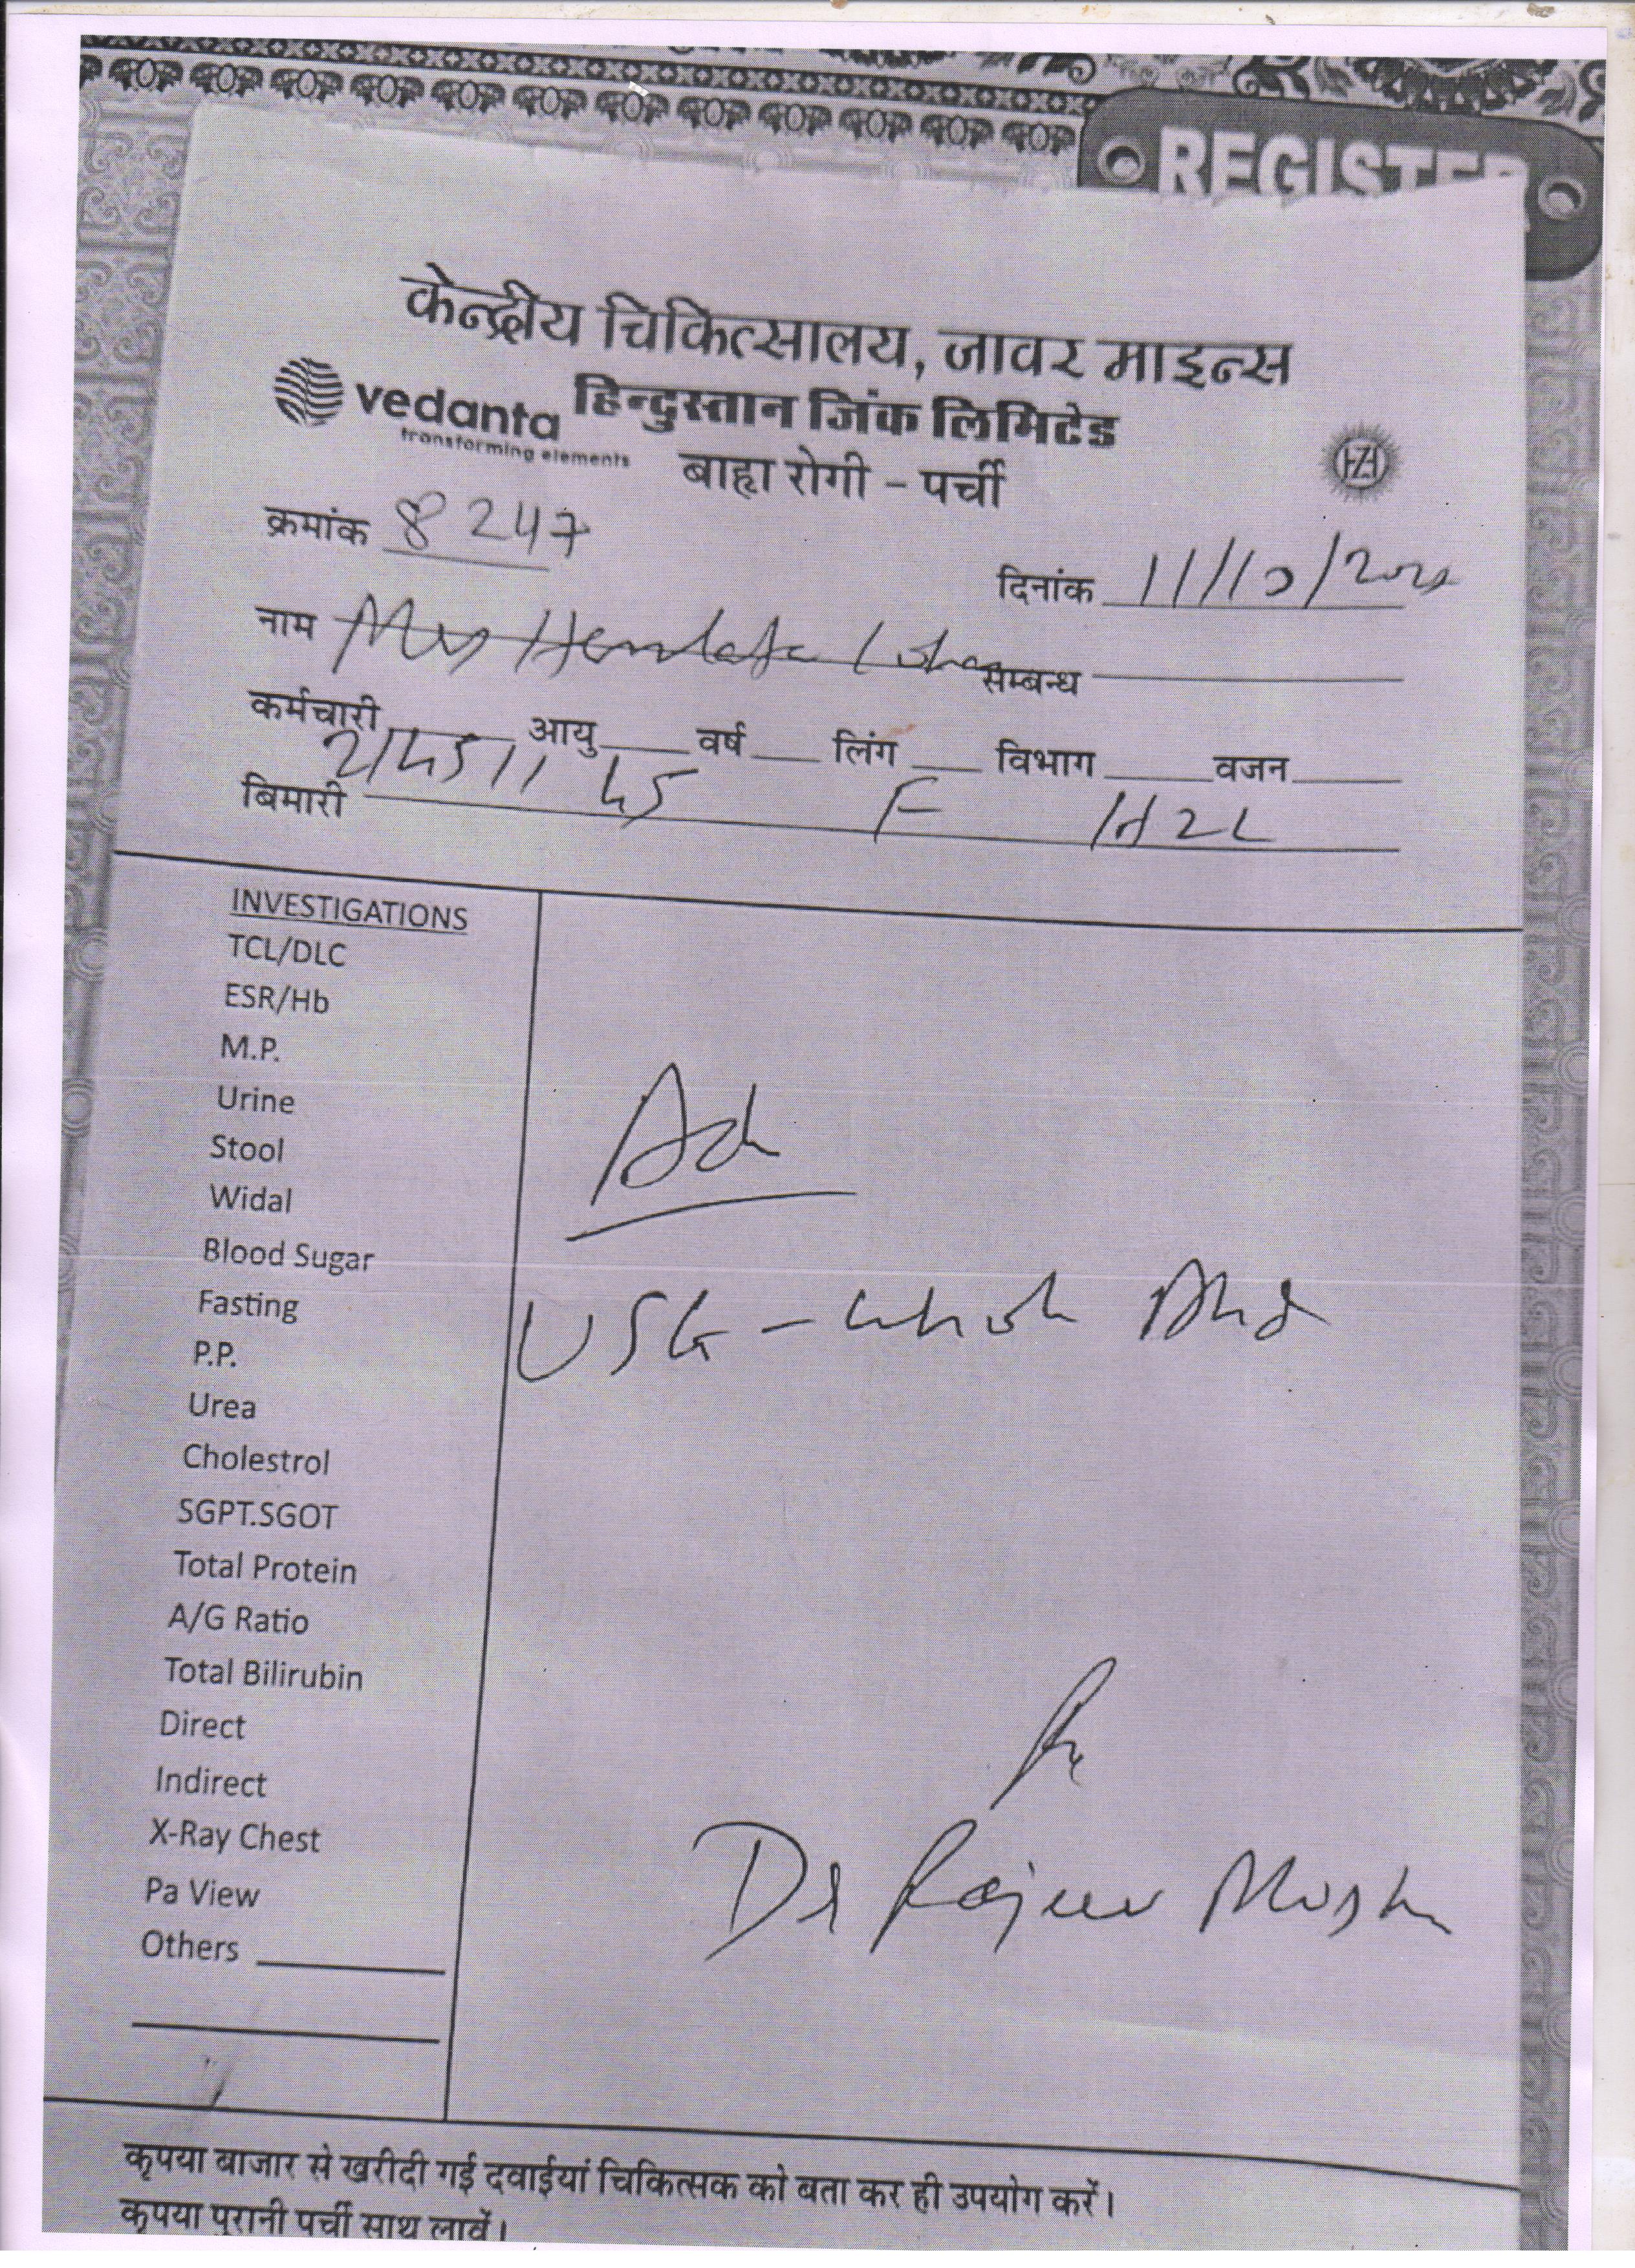 REGISTER
केन्द्रीय चिकित्सालय, जावर माइन्स
vedanta हिन्दुस्तान जिंक लिमिटेड
transforming elements
बाह्य रोगी - पर्ची
HZL
क्रमांक 8247
दिनांक 11/10/202
नाम Mrs Hemlata सम्बन्ध
कर्मचारी आयु वर्ष लिंग विभाग वजन
45 F HZL
बिमारी
INVESTIGATIONS
TCL/DLC
ESR/Hb
M.P.
Urine
Stool
Widal
Blood Sugar
Fasting
P.P.
Urea
Cholestrol
SGPT.SGOT
Total Protein
A/G Ratio
Total Bilirubin
Direct
Indirect
X-Ray Chest
Pa View
Others
Adv
USG - Whole Abd
Dr Rajeev
कृपया बाजार से खरीदी गई दवाईयां चिकित्सक को बता कर ही उपयोग करें।
कृपया पुरानी पर्ची साथ लावें।